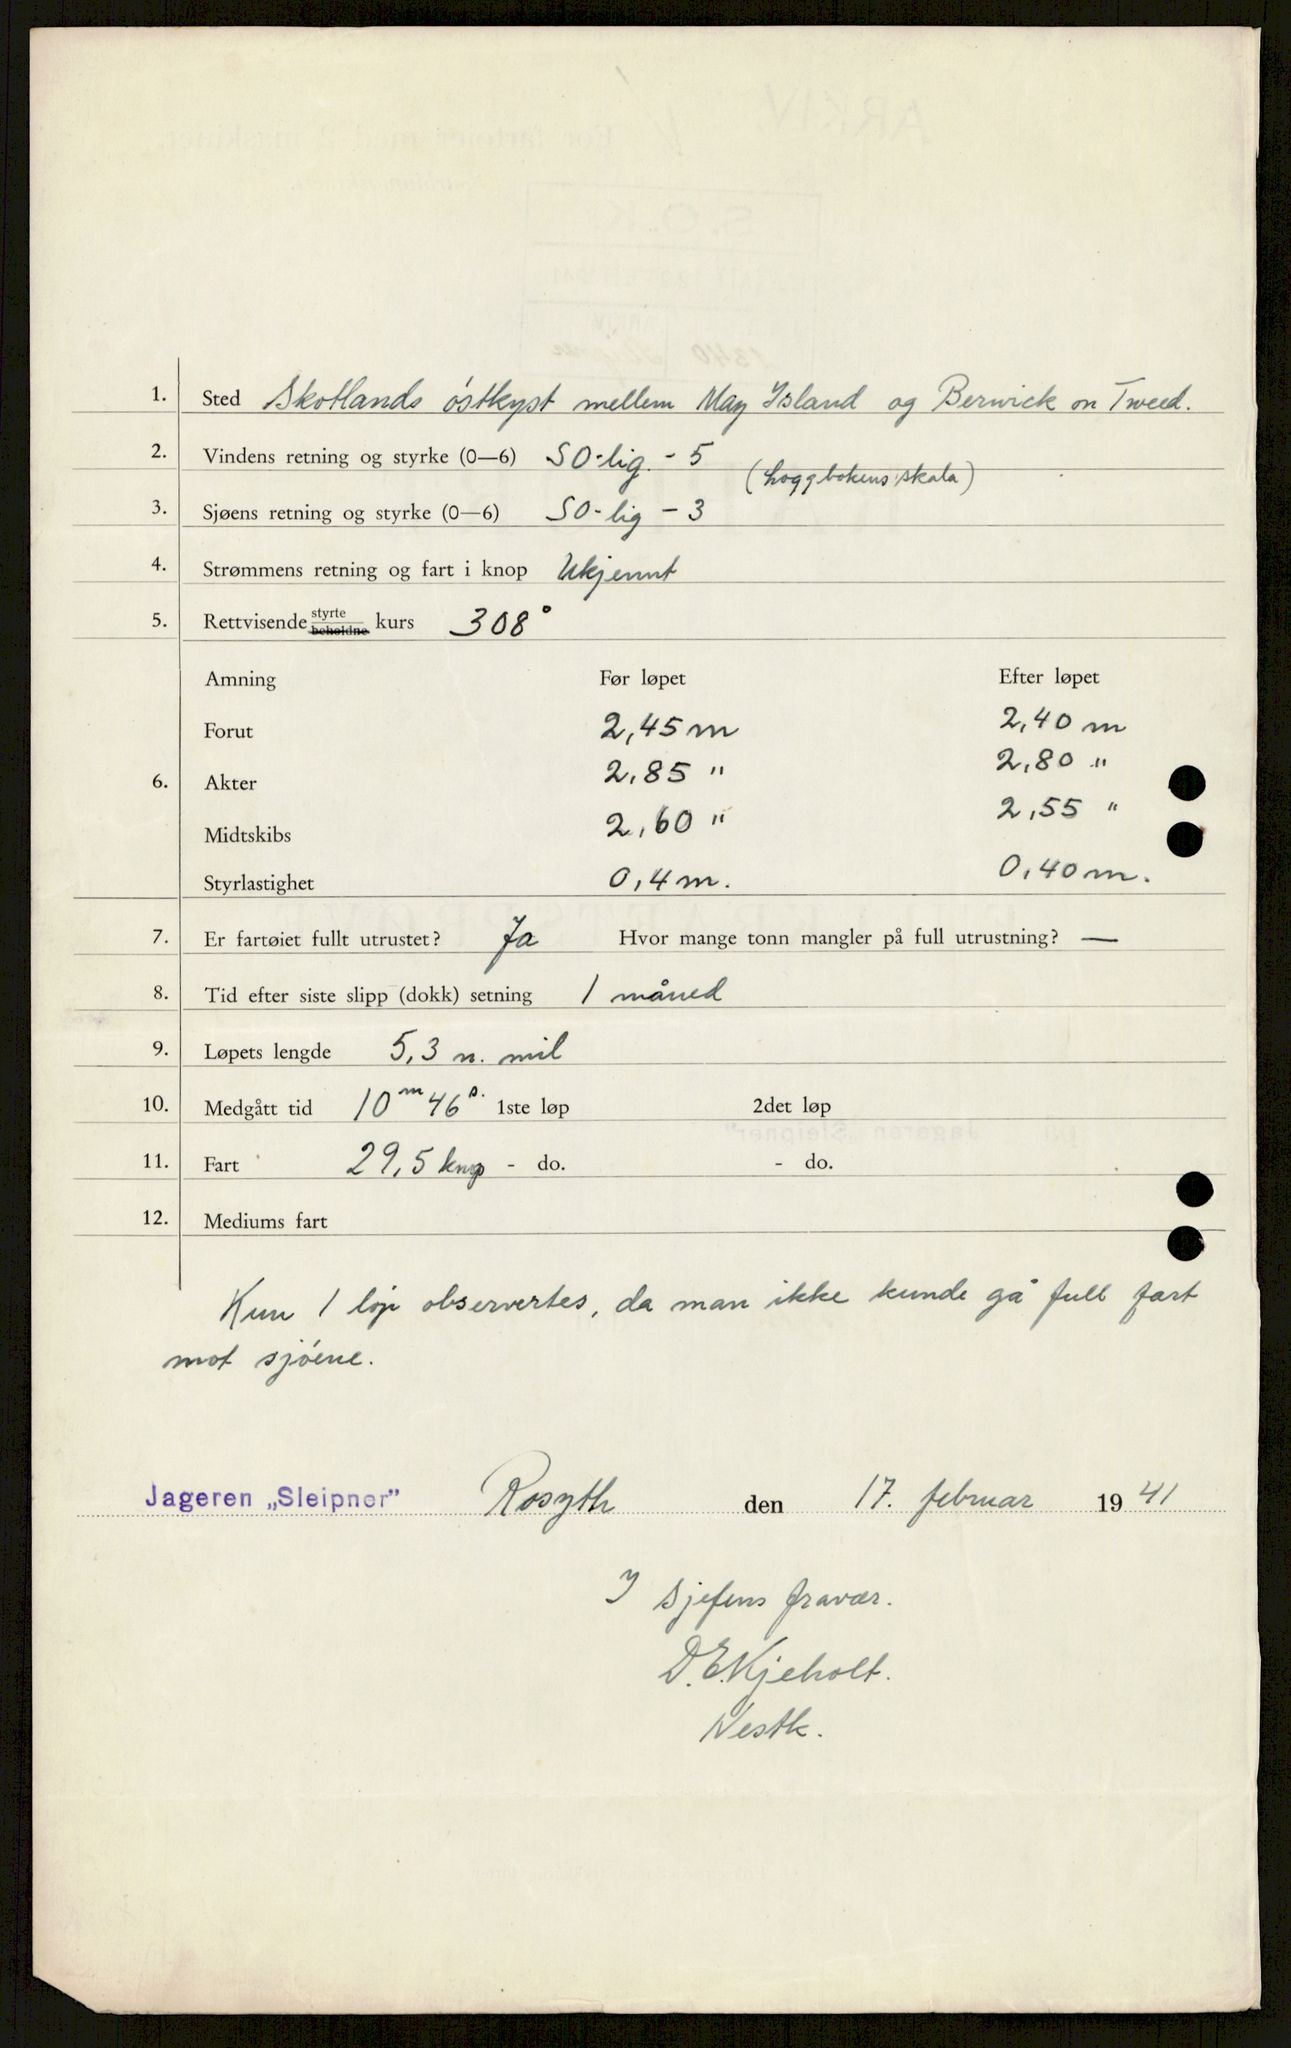 1. Sted Skotlands östkyst mellem May Island og Berwick on Tweed.
2. Vindens retning og styrke (0—6) SO-lig. - 5
(Loggbokens skala)
3. Sjøens retning og styrke (0—6) SO-lig - 3
4. Strømmens retning og fart i knop Ukjennt
5. Rettvisende styrte beholdne kurs 308°
Amning Før løpet Efter løpet
Forut 2,45 m 2,40 m
6. Akter 2,85 " 2,80 "
Midtskibs 2,60 " 2,55 "
Styrlastighet 0,4 m. 0,40 m.
7. Er fartøiet fullt utrustet? Ja Hvor mange tonn mangler på full utrustning? —
8. Tid efter siste slipp (dokk) setning 1 måned
9. Løpets lengde 5,3 n. mil
10. Medgått tid 10 m 46 s. 1ste løp 2det løp
11. Fart 29,5 knop - do. - do.
12. Mediums fart
Kun 1 löp observertes, da man ikke kunde gå full fart
mot sjöene.
Jageren „Sleipner" Rosyth den 17. februar 19 41
I sjefens fravær.
D.E. Kjeholt.
Nestk.